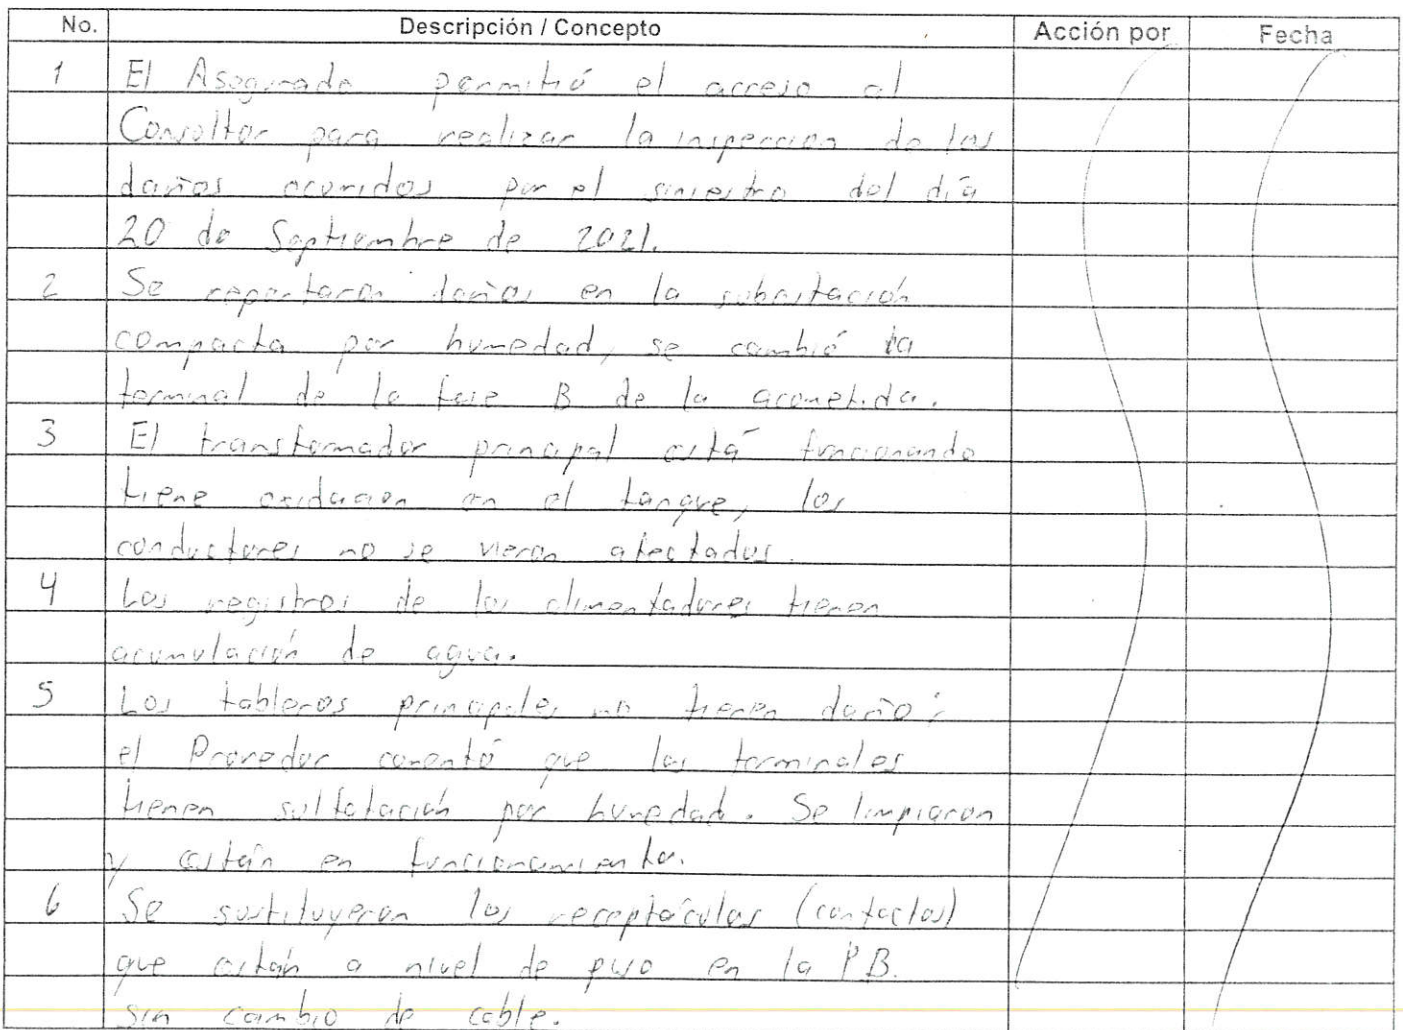 No. Descripción / Concepto Acción por Fecha
1 El Asegurado permitió el acceso al
Consultor para realizar la inspección de los
daños ocurridos por el siniestro del día
20 de Septiembre de 2021.
2 Se reportaron daños en la subestación
compacta por humedad, se cambió la
terminal de la fase B de la acometida.
3 El transformador principal está funcionando
tiene oxidación en el tanque, los
conductores no se vieron afectados.
4 Los registros de los alimentadores tienen
acumulación de agua.
5 Los tableros principales no tienen daño;
el Provedor comentó que las terminales
tienen sulfatación por humedad. Se limpiaron
y están en funcionamiento.
6 Se sustituyeron los receptáculos (contactos)
que están a nivel de piso en la PB.
sin cambio de cable.